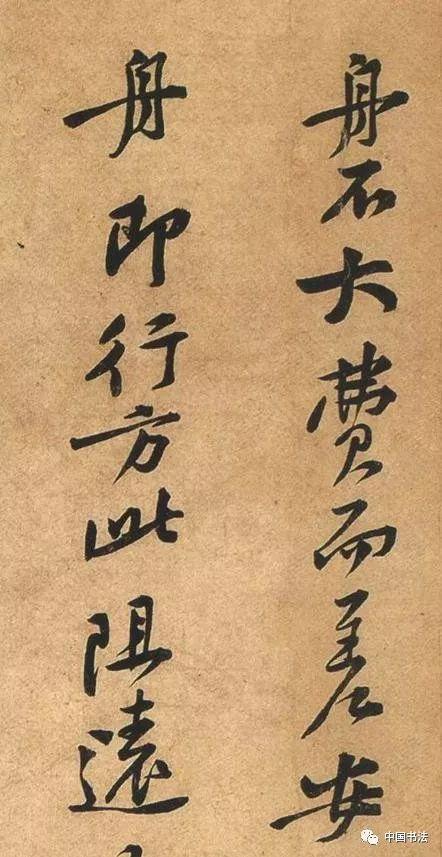 舟不大費而差安
舟即行方此阻遠
中国书法